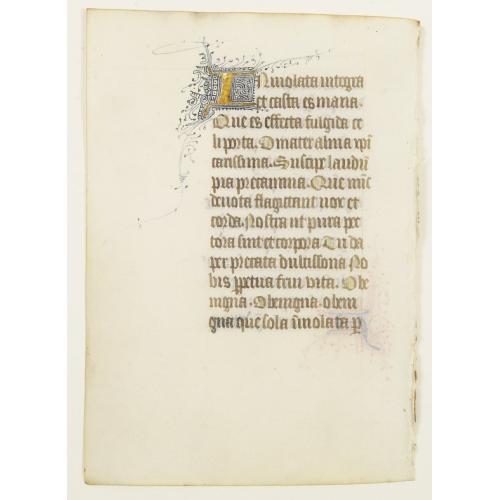 Inuiolata integra
et casta es maria.
Que es effecta fulgida ce
li porta. O mater alma xpi
carissima. Suscipe laudum
pia precamina. Que nunc
deuota flagitant uox et
corda. Nostra ut pura pec
tora sint et corpora Tu da
per precata dultissona No
bis ppetua frun vita. O be
nigna. O benigna. o beni
gna que sola inuiolata p